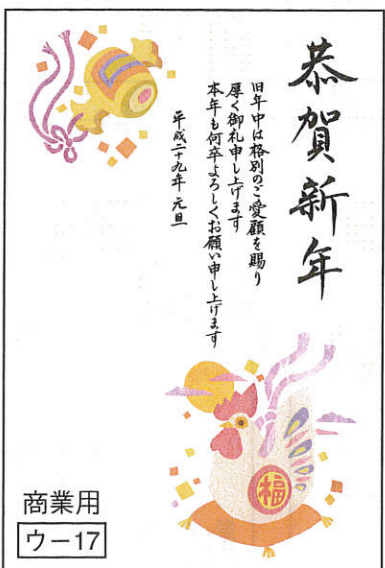 恭賀新年
旧年中は格別のご愛顧を賜り
厚く御礼申し上げます
本年も何卒よろしくお願い申し上げます
平成二十九年 元旦
福
商業用
ウー17